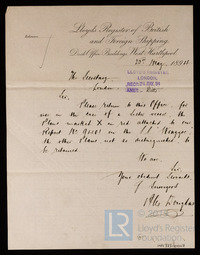 Lloyd's Register of British
and Foreign Shipping.
Dock Office Buildings, West Hartlepool
23rd May 188
LLOYD'S REGISTER
LONDON
The Secretary
London
Sir,
Please return to this Office, for
use in the case of a sister vessel, the
Plans marked X in red attached to our
Report No. on the S.S.
the other Plans not so distinguished, to
be retained.
We are,
Sir,
Your obedient Servants,
Surveyors
LR
Lloyd's Register
Foundation